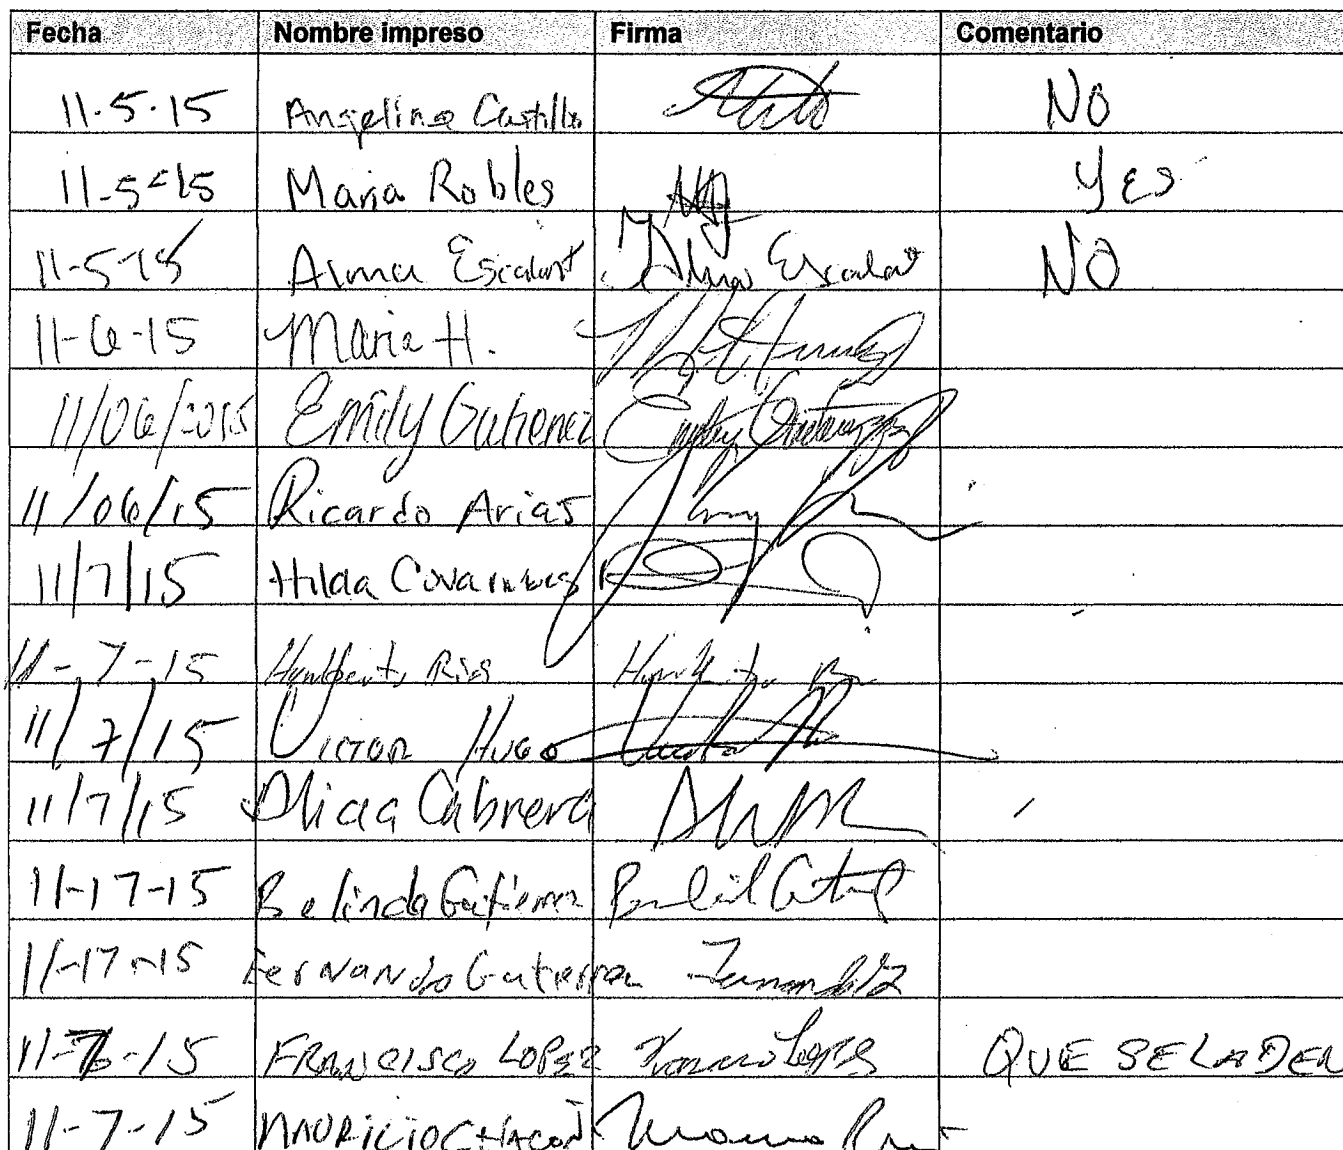 Fecha Nombre impreso Firma Comentario
11-5-15 Angelina Castillo NO
11-5-15 Maria Robles Yes
11-5-15 Alma Escalant Alma Escalat NO
11-6-15 Maria H.
11/06/2015 Emily Gutierrez Emily Gutierrez
11/06/15 Ricardo Arias
11/7/15 Hilda Covarrubias
11-7-15 Humberto Rios Humberto
11/7/15 Victor Hugo
11/7/15 Alicia Cabrera
11-17-15 Belinda Gutierrez
11-17-15 Fernando Gutierrez
15 FRANCISCO LOPEZ Lopez QUE SE LA DEN
11-7-15 MAURICIO CHACON